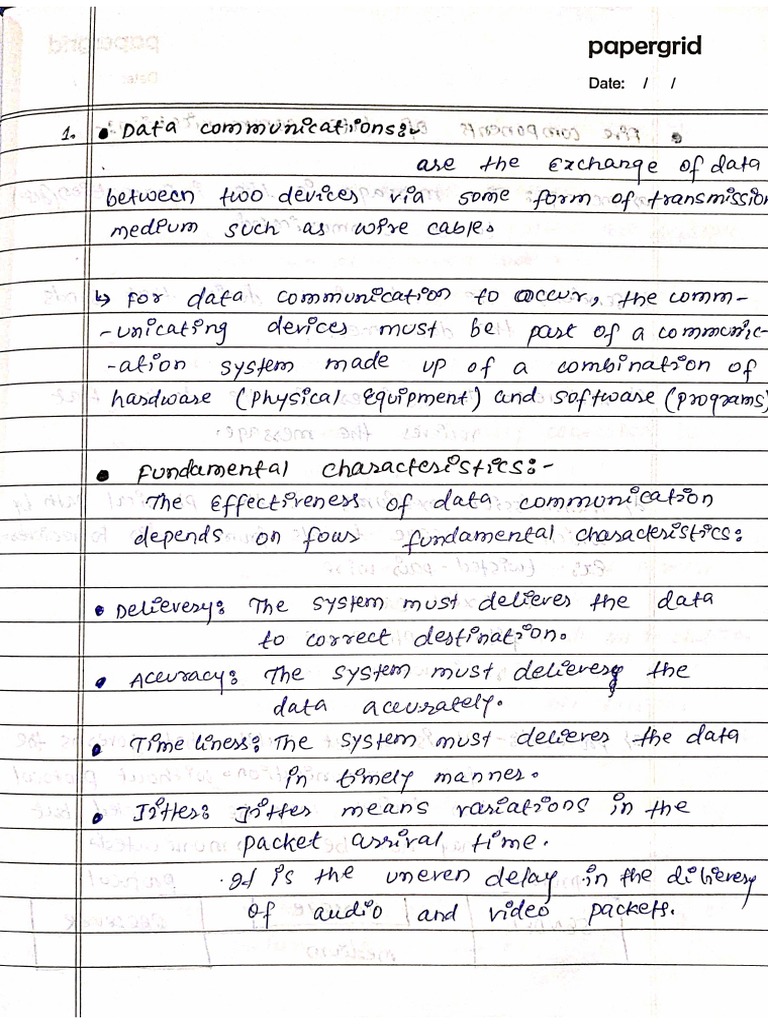 papergrid
Date: / /
1. • Data communications:-
are the exchange of data
between two devices via some form of transmission
medium such as wire cable.
↳ For data communication to occur, the comm-
-unicating devices must be part of a communic-
-ation system made up of a combination of
hardware (physical equipment) and software (programs)
• Fundamental characteristics:-
The effectiveness of data communication
depends on four fundamental characteristics:
• Delievery: The system must deliever the data
to correct destination.
• Accuracy: The system must delievery the
data accurately.
• Time liness: The system must deliever the data
in timely manner.
• Jitter: Jitter means variations in the
packet arrival time.
. It is the uneven delay in the dilievery
of audio and video packets.